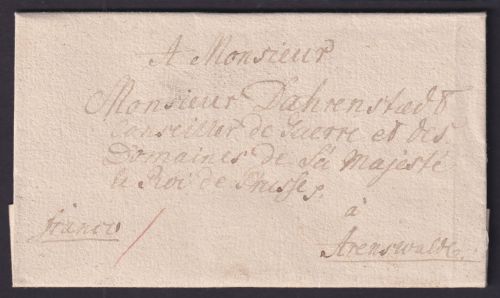 A Monsieur
Monsieur Dahrenstædt
Conseiller de Guerre et des
Domaines de Sa Majesté
le Roi de Prusse,
à
franco
Arenswalde.